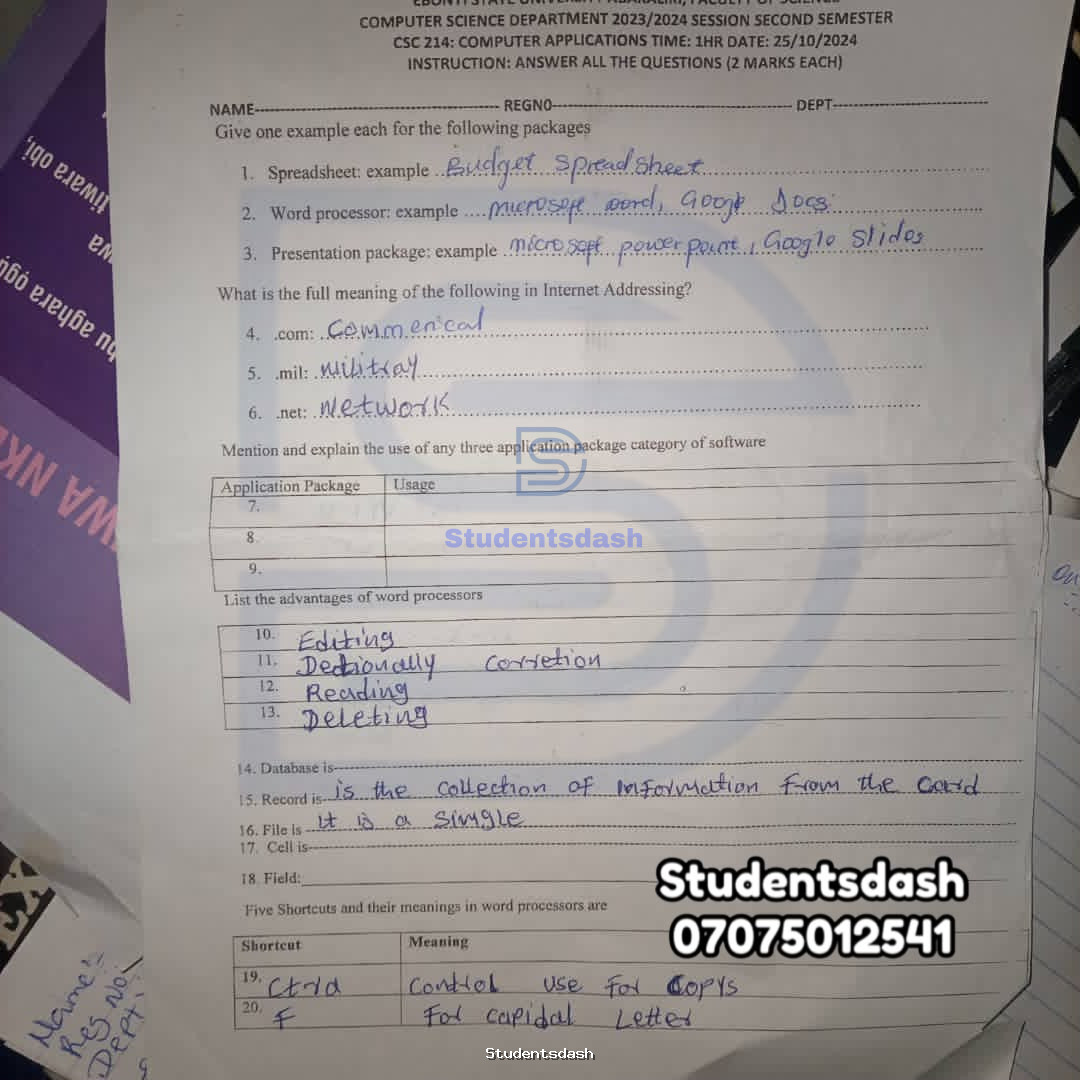 COMPUTER SCIENCE DEPARTMENT 2023/2024 SESSION SECOND SEMESTER
CSC 214: COMPUTER APPLICATIONS TIME: 1HR DATE: 25/10/2024
INSTRUCTION: ANSWER ALL THE QUESTIONS (2 MARKS EACH)
NAME REGN0 DEPT
Give one example each for the following packages
1. Spreadsheet: example Budget Spreadsheet
2. Word processor: example microsoft word, Google Docs
3. Presentation package: example microsoft powerpoint, Google Slides
What is the full meaning of the following in Internet Addressing?
4. .com: Commerical
5. .mil: Militray
6. .net: Network
Mention and explain the use of any three application package category of software
Application Package Usage
7.
8.
9.
Studentsdash
List the advantages of word processors
10. Editing
11. Corretion
12. Reading
13. Deleting
14. Database is
15. Record is is the collection of information from the
16. File is it is a single
17. Cell is
18. Field:
Studentsdash
07075012541
Five Shortcuts and their meanings in word processors are
Shortcut Meaning
19. Control use for Copys
20. F For capidal Letter
Name:
Reg No:
Dept:
Studentsdash